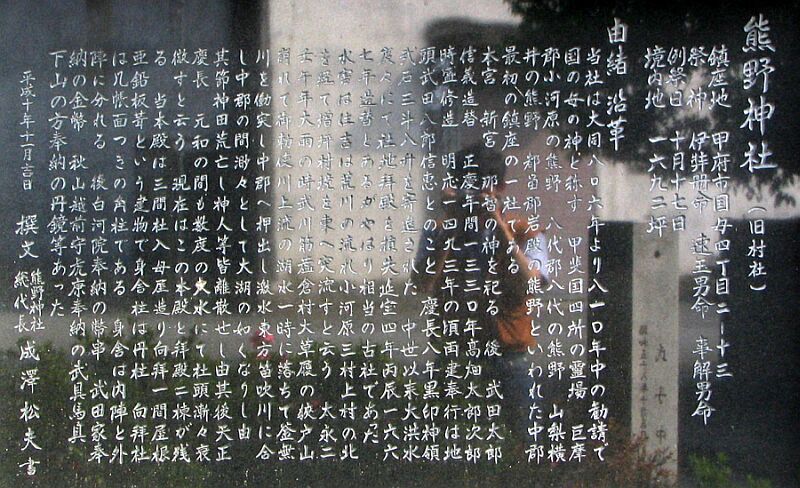 熊野神社（旧村社）
鎮座地　甲府市国母四丁目二ー十三
祭神　伊弉册命　速玉男命　事解男命
例祭日　十月十七日
境内地　一六九二坪
由緒沿革
当社は大同八〇六年より八一〇年中の勧請で
国の母の神と称す　甲斐国四所の霊場　巨摩
郡小河原の熊野　八代郡八代の熊野　山梨横
井の熊野　都留郡岩殿の熊野といわれた中郡
最初の鎮座の一社である
本宮　新宮　那智の神を祀る　後　武田太郎
信義造替　正慶年間一三三〇年高畑太郎次郎
時置修造　明応一四九三年の頃再建奉行は地
頭武田八郎信恵とのこと　慶長八年黒印神領
弐石三斗八升を寄進された　中世以来大洪水
度々にて社地拝殿を損失延宝四年丙辰一六六
七年造替とあるがやはり相当の古社であった
水害は住吉は荒川の流れ小河原三村上村の北
を経て増坪村境を東へ突流すと云う　太永二
壬午年大雨の時武川筋 村大草履の峡戸山
崩れて御勅使川上流の湖水一時に落ちて釜無
川を働突し中郡へ押出し激水東方笛吹川に合
し中郡の間渺々として大湖の如くなりし由
其節神田荒亡し神人等皆離散せし由其後天正
慶長　元和の間も数度の大水にて社頭漸々衰
微すと云う　現在はこの本殿と拝殿二棟が残
る　当本殿は三間社入母屋造り向拝一間屋根
亜鉛板葺という建物で身舎柱は丹柱　向拝柱
は几帳面つきの角柱である　身舎は内陣と外
陣に分れる　後白河院奉納の幣串　武田家奉
納の金幣　秋山越前守虎康奉納の武具馬具
下山の方奉納の丹鏡等あった
平成十年十一月吉日　撰文　熊野神社
総代長　成澤松夫　書